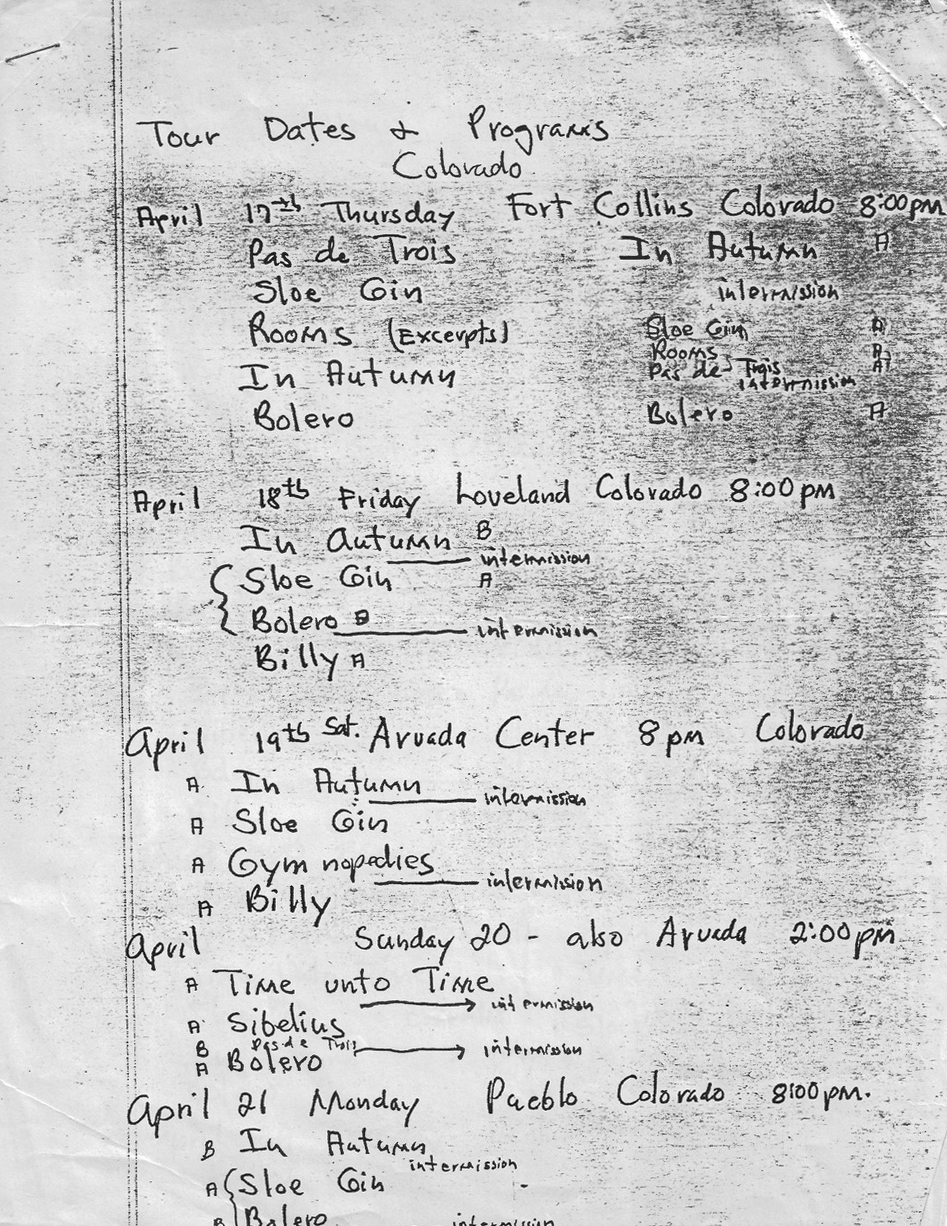 Tour Dates & Programs
Colorado
April 17th Thursday Fort Collins Colorado 8:00pm
Pas de Trois In Autumn A
Sloe Gin intermission
Rooms (Excerpts) Sloe Gin A
Rooms A
In Autumn Pas de Trois A
intermission
Bolero Bolero A
April 18th Friday Loveland Colorado 8:00pm
In Autumn B
intermission
Sloe Gin A
Bolero B intermission
Billy A
April 19th Sat. Arvada Center 8pm Colorado
A In Autumn intermission
A Sloe Gin
A Gymnopedies intermission
A Billy
April Sunday 20 - also Arvada 2:00pm
A Time unto Time
intermission
A Sibelius
B Pas de Trois intermission
A Bolero
April 21 Monday Pueblo Colorado 8:00pm.
B In Autumn
intermission
A Sloe Gin
B Bolero intermission